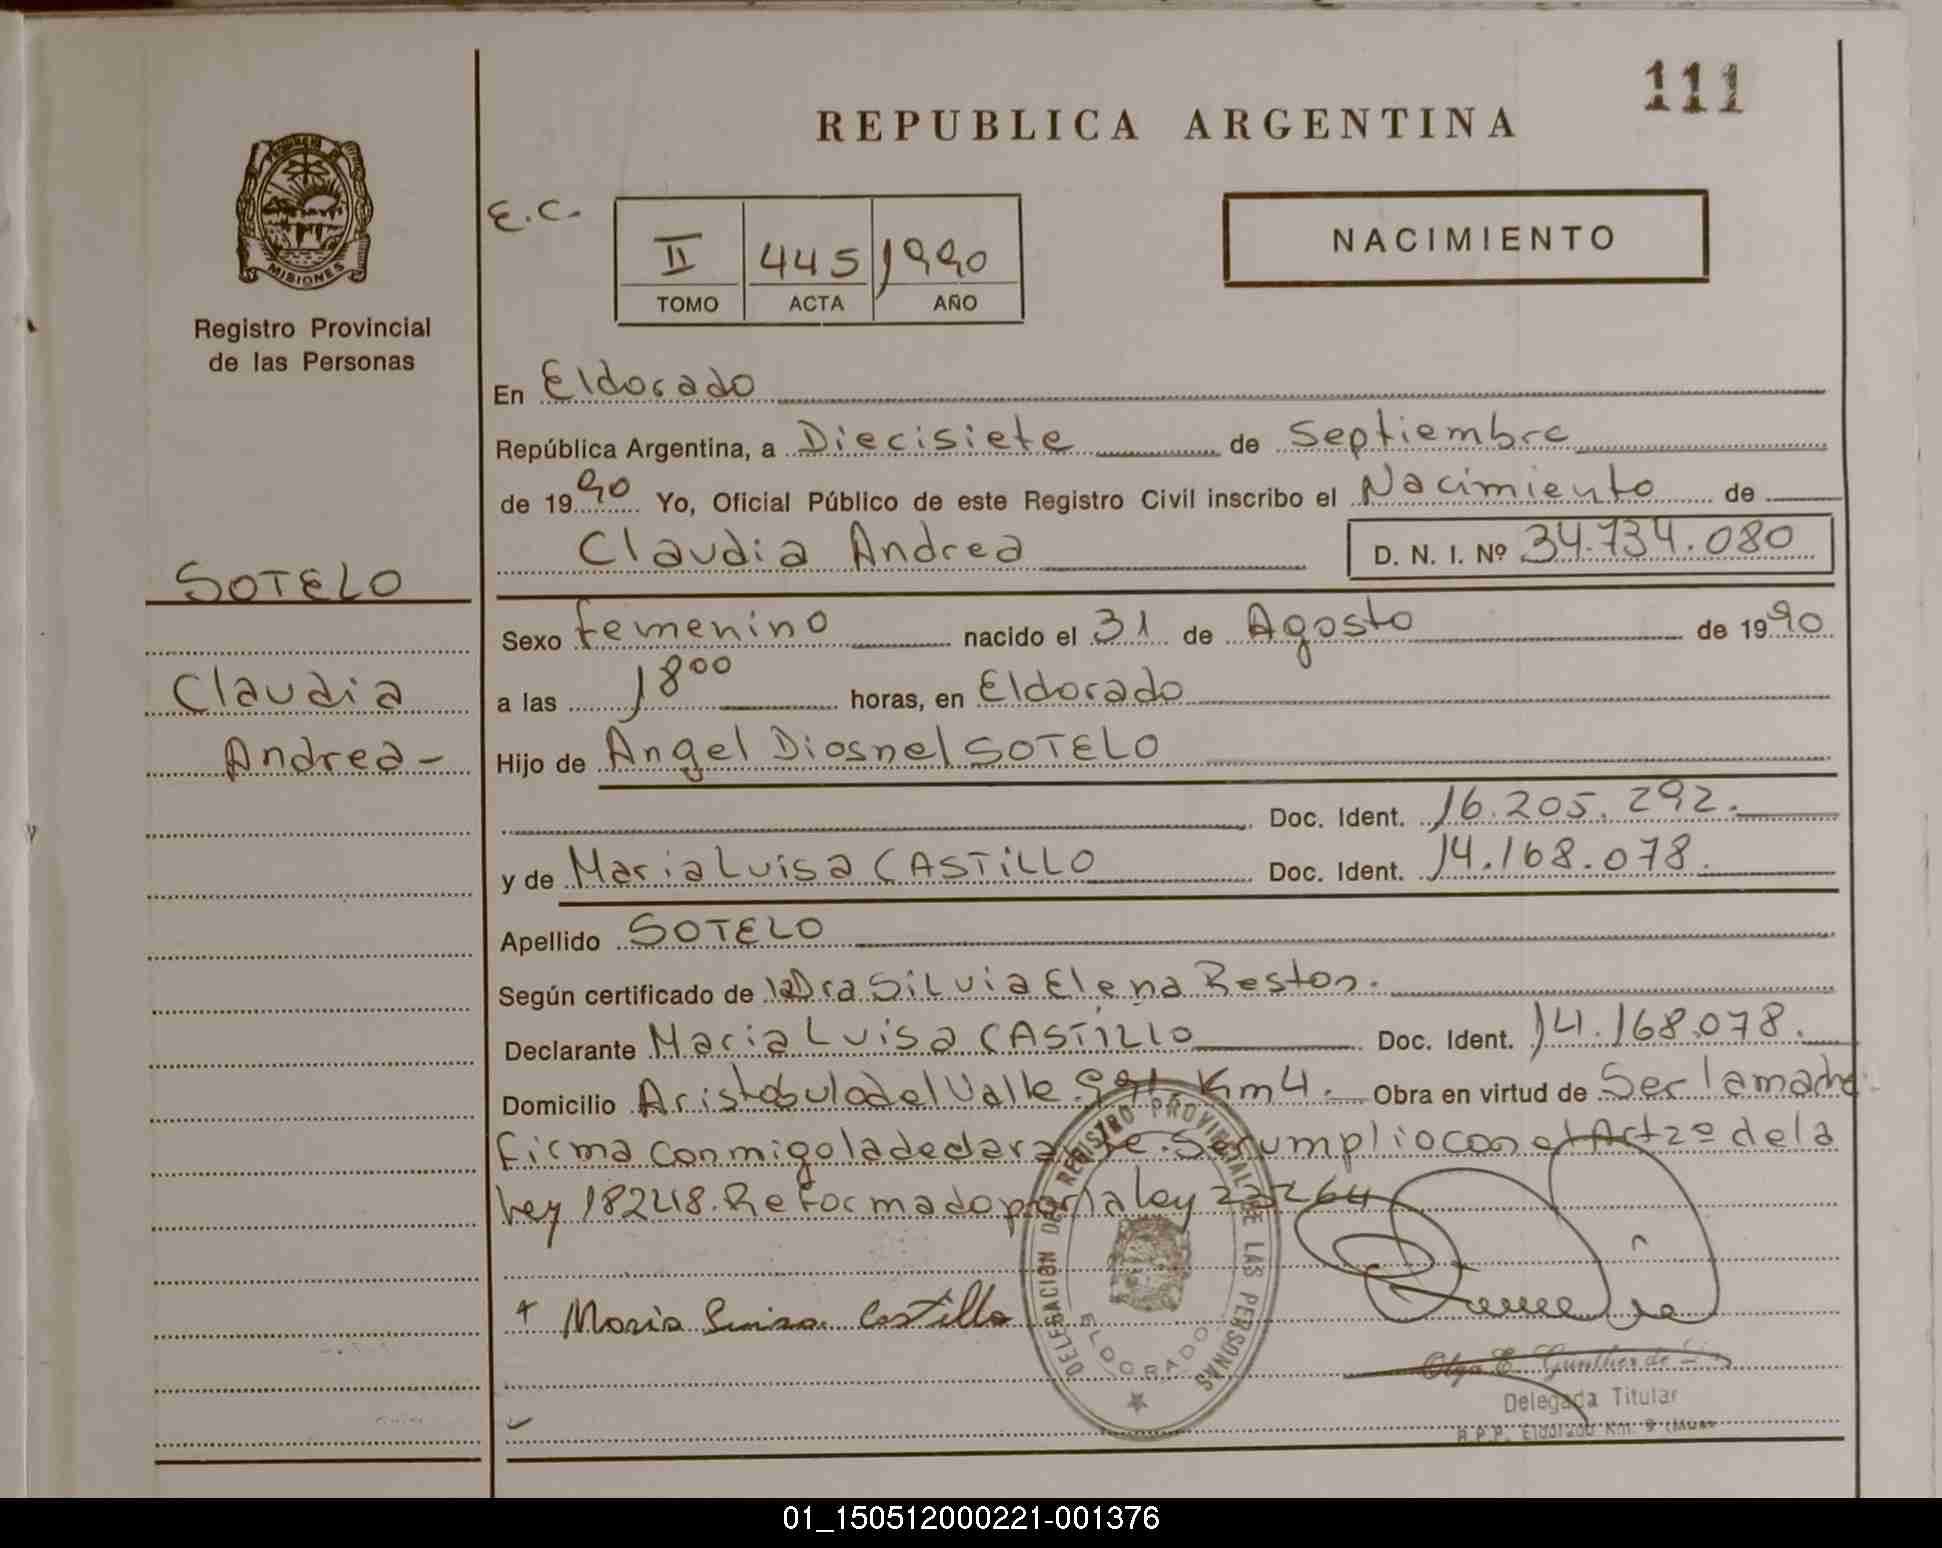 111
REPUBLICA ARGENTINA
MISIONES
Registro Provincial
de las Personas
E.C.
II 445 1990
TOMO ACTA AÑO
NACIMIENTO
En Eldorado
República Argentina, a Diecisiete de Septiembre
de 1990 Yo, Oficial Público de este Registro Civil inscribo el Nacimiento de
Claudia Andrea D. N. I. Nº 34.734.080
SOTELO
Claudia
Andrea-
Sexo femenino nacido el 31 de Agosto de 1990
a las 18 00 horas, en Eldorado
Hijo de Angel Diosnel SOTELO
Doc. Ident. 16.205.292.
y de Maria Luisa CASTILLO Doc. Ident. 14.168.078.
Apellido SOTELO
Según certificado de la Dra Silvia Elena Reston.
Declarante Maria Luisa CASTILLO Doc. Ident. 14.168.078.
Domicilio Aristobulo del Valle Km 4. Obra en virtud de Ser la madre
firma conmigo la declarante. Se cumplio con el Art 2º de la
Ley 18248. Reformado por la Ley 23264
Maria Luisa Castillo
DELEGACION DEL REGISTRO PROVINCIAL DE LAS PERSONAS
ELDORADO
Olga E. Gunther de
Delegada Titular
R.P.P. Eldorado Km. 9
01_150512000221-001376